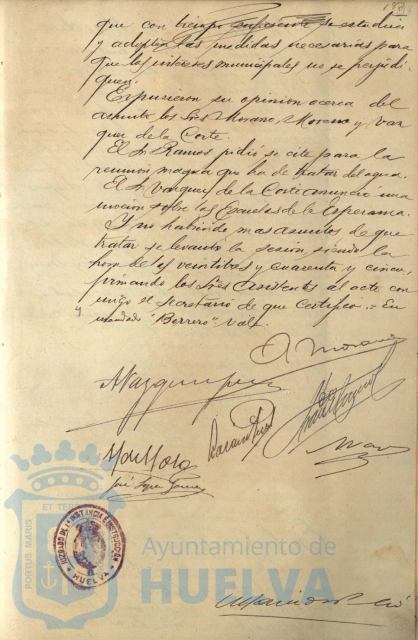 que con tiempo se estudien
y adopten las medidas necesarias para
que los intereses municipales no se perjudi-
quen.
Expusieron su opinion acerca del
asunto los Sres Morano, Moreno y Vaz
quez de la Corte.
El Sr. Ramos pidió se cite para la
reunion magna que ha de tratar del agua.
El Sr. Vazquez de la Corte anunció una
mocion sobre las Escuelas de la Esperanza.
Y no habiendo mas asuntos de que
tratar se levantó la sesion siendo la
hora de las veintidos y cuarenta y cinco,
firmando los Sres Asistentes al acto con
migo el Secretario de que certifico. = En
mendado "Borrero". Vale.
JUZGADO DE 1ª INSTANCIA E INSTRUCCION
HUELVA
PORTUS MARIS ET TER
Ayuntamiento de
HUELVA